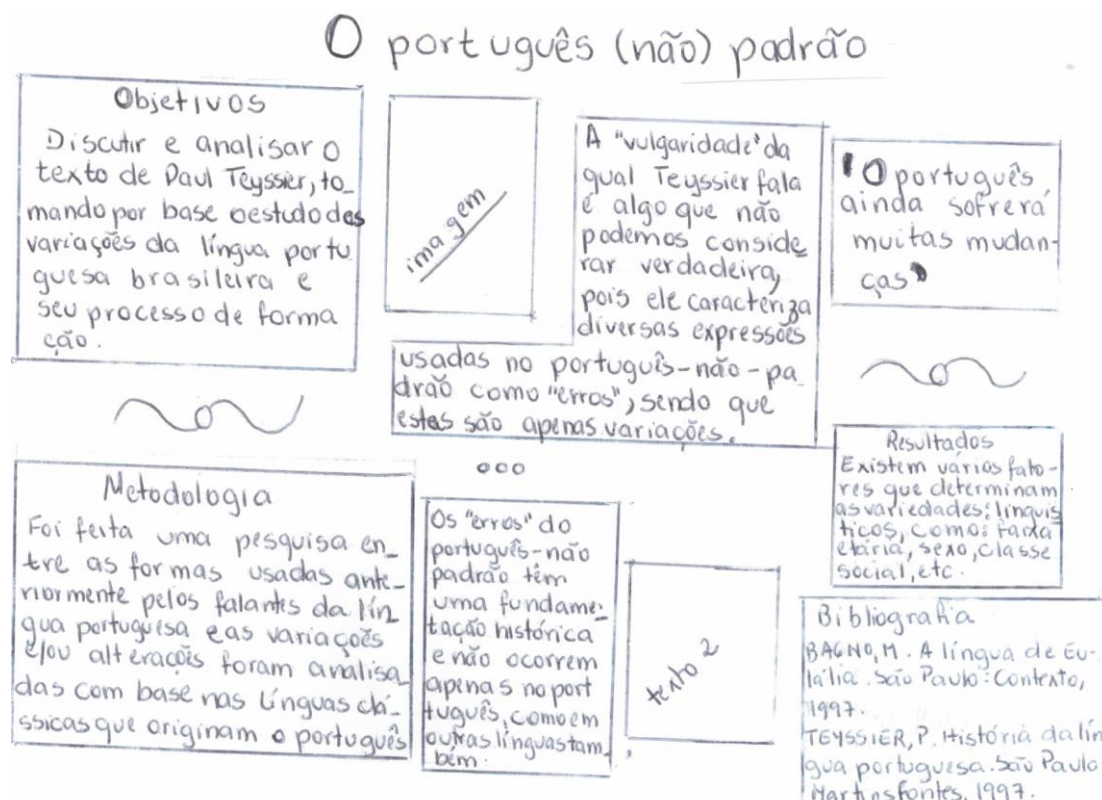 O português (não) padrão
Objetivos
Discutir e analisar o
texto de Paul Teyssier, to_
mando por base o estudo das
variações da língua portu
guesa brasileira e
seu processo de forma
ção.
imagem
A "vulgaridade" da
qual Teyssier fala
é algo que não
podemos conside_
rar verdadeira,
pois ele caracteriza
diversas expressões
usadas no português-não-pa_
drão como "erros", sendo que
estes são apenas variações.
"O português
ainda sofrerá
muitas mudan-
ças"
Metodologia
Foi feita uma pesquisa en_
tre as formas usadas ante_
riormente pelos falantes da lín
gua portuguesa e as variações
e/ou alterações foram analisa_
das com base nas línguas clá_
ssicas que originam o português
Os "erros" do
português-não
padrão têm
uma fundame-
tação histórica
e não ocorrem
apenas no port
tuguês, como em
outras línguas tam_
bém.
texto 2
Resultados
Existem vários fato-
res que determinam
as variedades: linguís
ticos, como: faixa
etária, sexo, classe
social, etc.
Bibliografia
BAGNO, M. A língua de Eu-
lália. São Paulo: Contexto,
1997.
TEYSSIER, P. História da lín
gua portuguesa. São Paulo
Martins fontes, 1997.